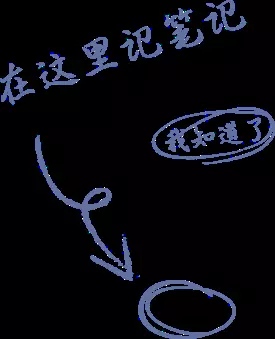 在这里记笔记
我知道了